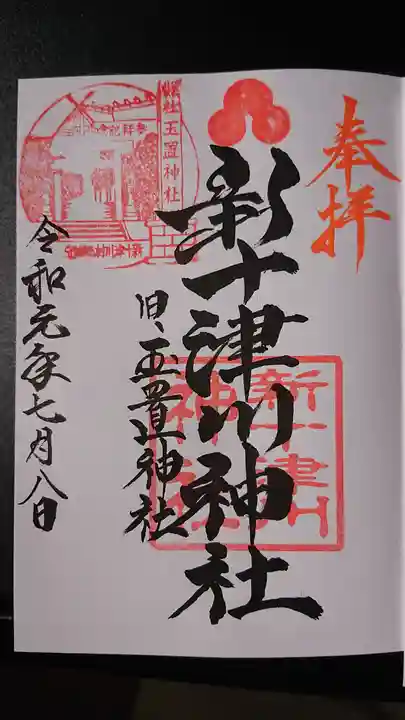 奉拝
新十津川神社
新十津川
神社
旧、玉置神社
郷社玉置神社
参拝記念
令和元年七月八日